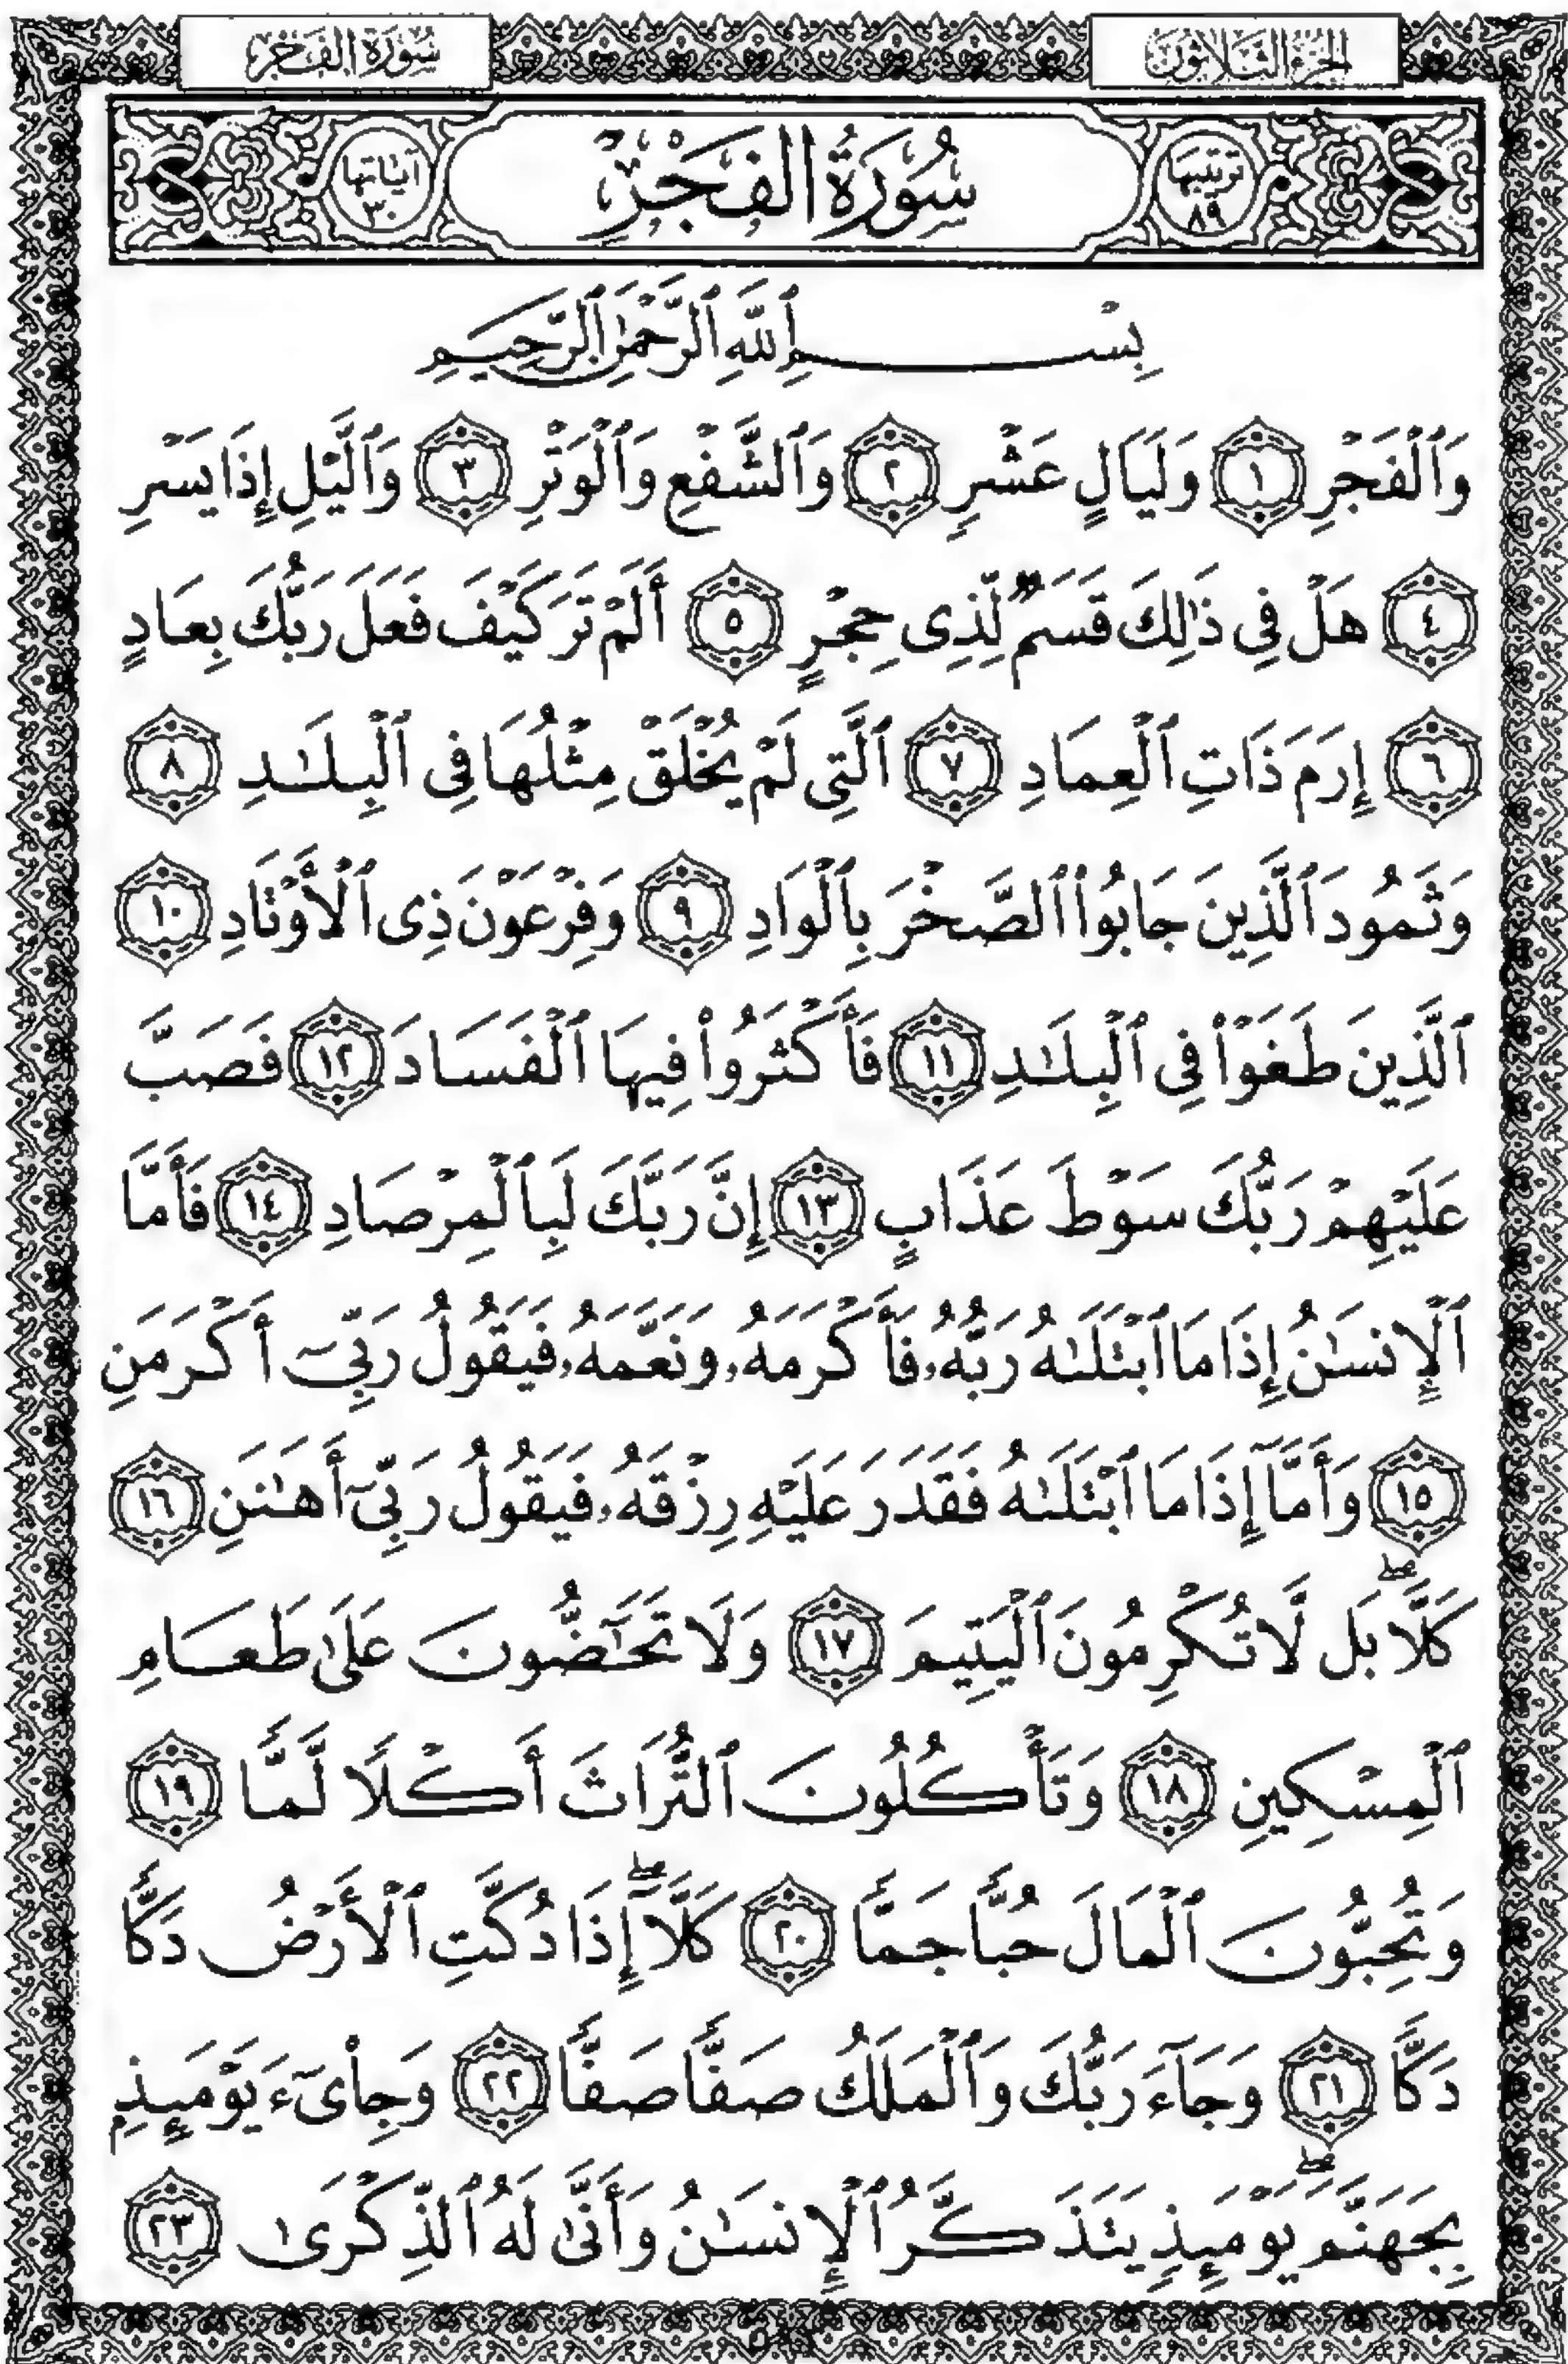 الجزء الثلاثون
سورة الفجر
ترتيبها ٨٩
سُورَةُ الفَجْرِ
آياتها ٣٠
بِسْمِ ٱللَّهِ ٱلرَّحْمَٰنِ ٱلرَّحِيمِ
وَٱلْفَجْرِ ١ وَلَيَالٍ عَشْرٍ ٢ وَٱلشَّفْعِ وَٱلْوَتْرِ ٣ وَٱلَّيْلِ إِذَا يَسْرِ
٤ هَلْ فِى ذَٰلِكَ قَسَمٌ لِّذِى حِجْرٍ ٥ أَلَمْ تَرَ كَيْفَ فَعَلَ رَبُّكَ بِعَادٍ
٦ إِرَمَ ذَاتِ ٱلْعِمَادِ ٧ ٱلَّتِى لَمْ يُخْلَقْ مِثْلُهَا فِى ٱلْبِلَٰدِ ٨
وَثَمُودَ ٱلَّذِينَ جَابُوا۟ ٱلصَّخْرَ بِٱلْوَادِ ٩ وَفِرْعَوْنَ ذِى ٱلْأَوْتَادِ ١٠
ٱلَّذِينَ طَغَوْا۟ فِى ٱلْبِلَٰدِ ١١ فَأَكْثَرُوا۟ فِيهَا ٱلْفَسَادَ ١٢ فَصَبَّ
عَلَيْهِمْ رَبُّكَ سَوْطَ عَذَابٍ ١٣ إِنَّ رَبَّكَ لَبِٱلْمِرْصَادِ ١٤ فَأَمَّا
ٱلْإِنسَٰنُ إِذَا مَا ٱبْتَلَىٰهُ رَبُّهُۥ فَأَكْرَمَهُۥ وَنَعَّمَهُۥ فَيَقُولُ رَبِّىٓ أَكْرَمَنِ
١٥ وَأَمَّآ إِذَا مَا ٱبْتَلَىٰهُ فَقَدَرَ عَلَيْهِ رِزْقَهُۥ فَيَقُولُ رَبِّىٓ أَهَٰنَنِ ١٦
كَلَّا ۖ بَل لَّا تُكْرِمُونَ ٱلْيَتِيمَ ١٧ وَلَا تَحَٰٓضُّونَ عَلَىٰ طَعَامِ
ٱلْمِسْكِينِ ١٨ وَتَأْكُلُونَ ٱلتُّرَاثَ أَكْلًا لَّمًّا ١٩
وَتُحِبُّونَ ٱلْمَالَ حُبًّا جَمًّا ٢٠ كَلَّآ ۖ إِذَا دُكَّتِ ٱلْأَرْضُ دَكًّا
دَكًّا ٢١ وَجَآءَ رَبُّكَ وَٱلْمَلَكُ صَفًّا صَفًّا ٢٢ وَجِا۟ىٓءَ يَوْمَئِذٍۭ
بِجَهَنَّمَ ۚ يَوْمَئِذٍ يَتَذَكَّرُ ٱلْإِنسَٰنُ وَأَنَّىٰ لَهُ ٱلذِّكْرَىٰ ٢٣